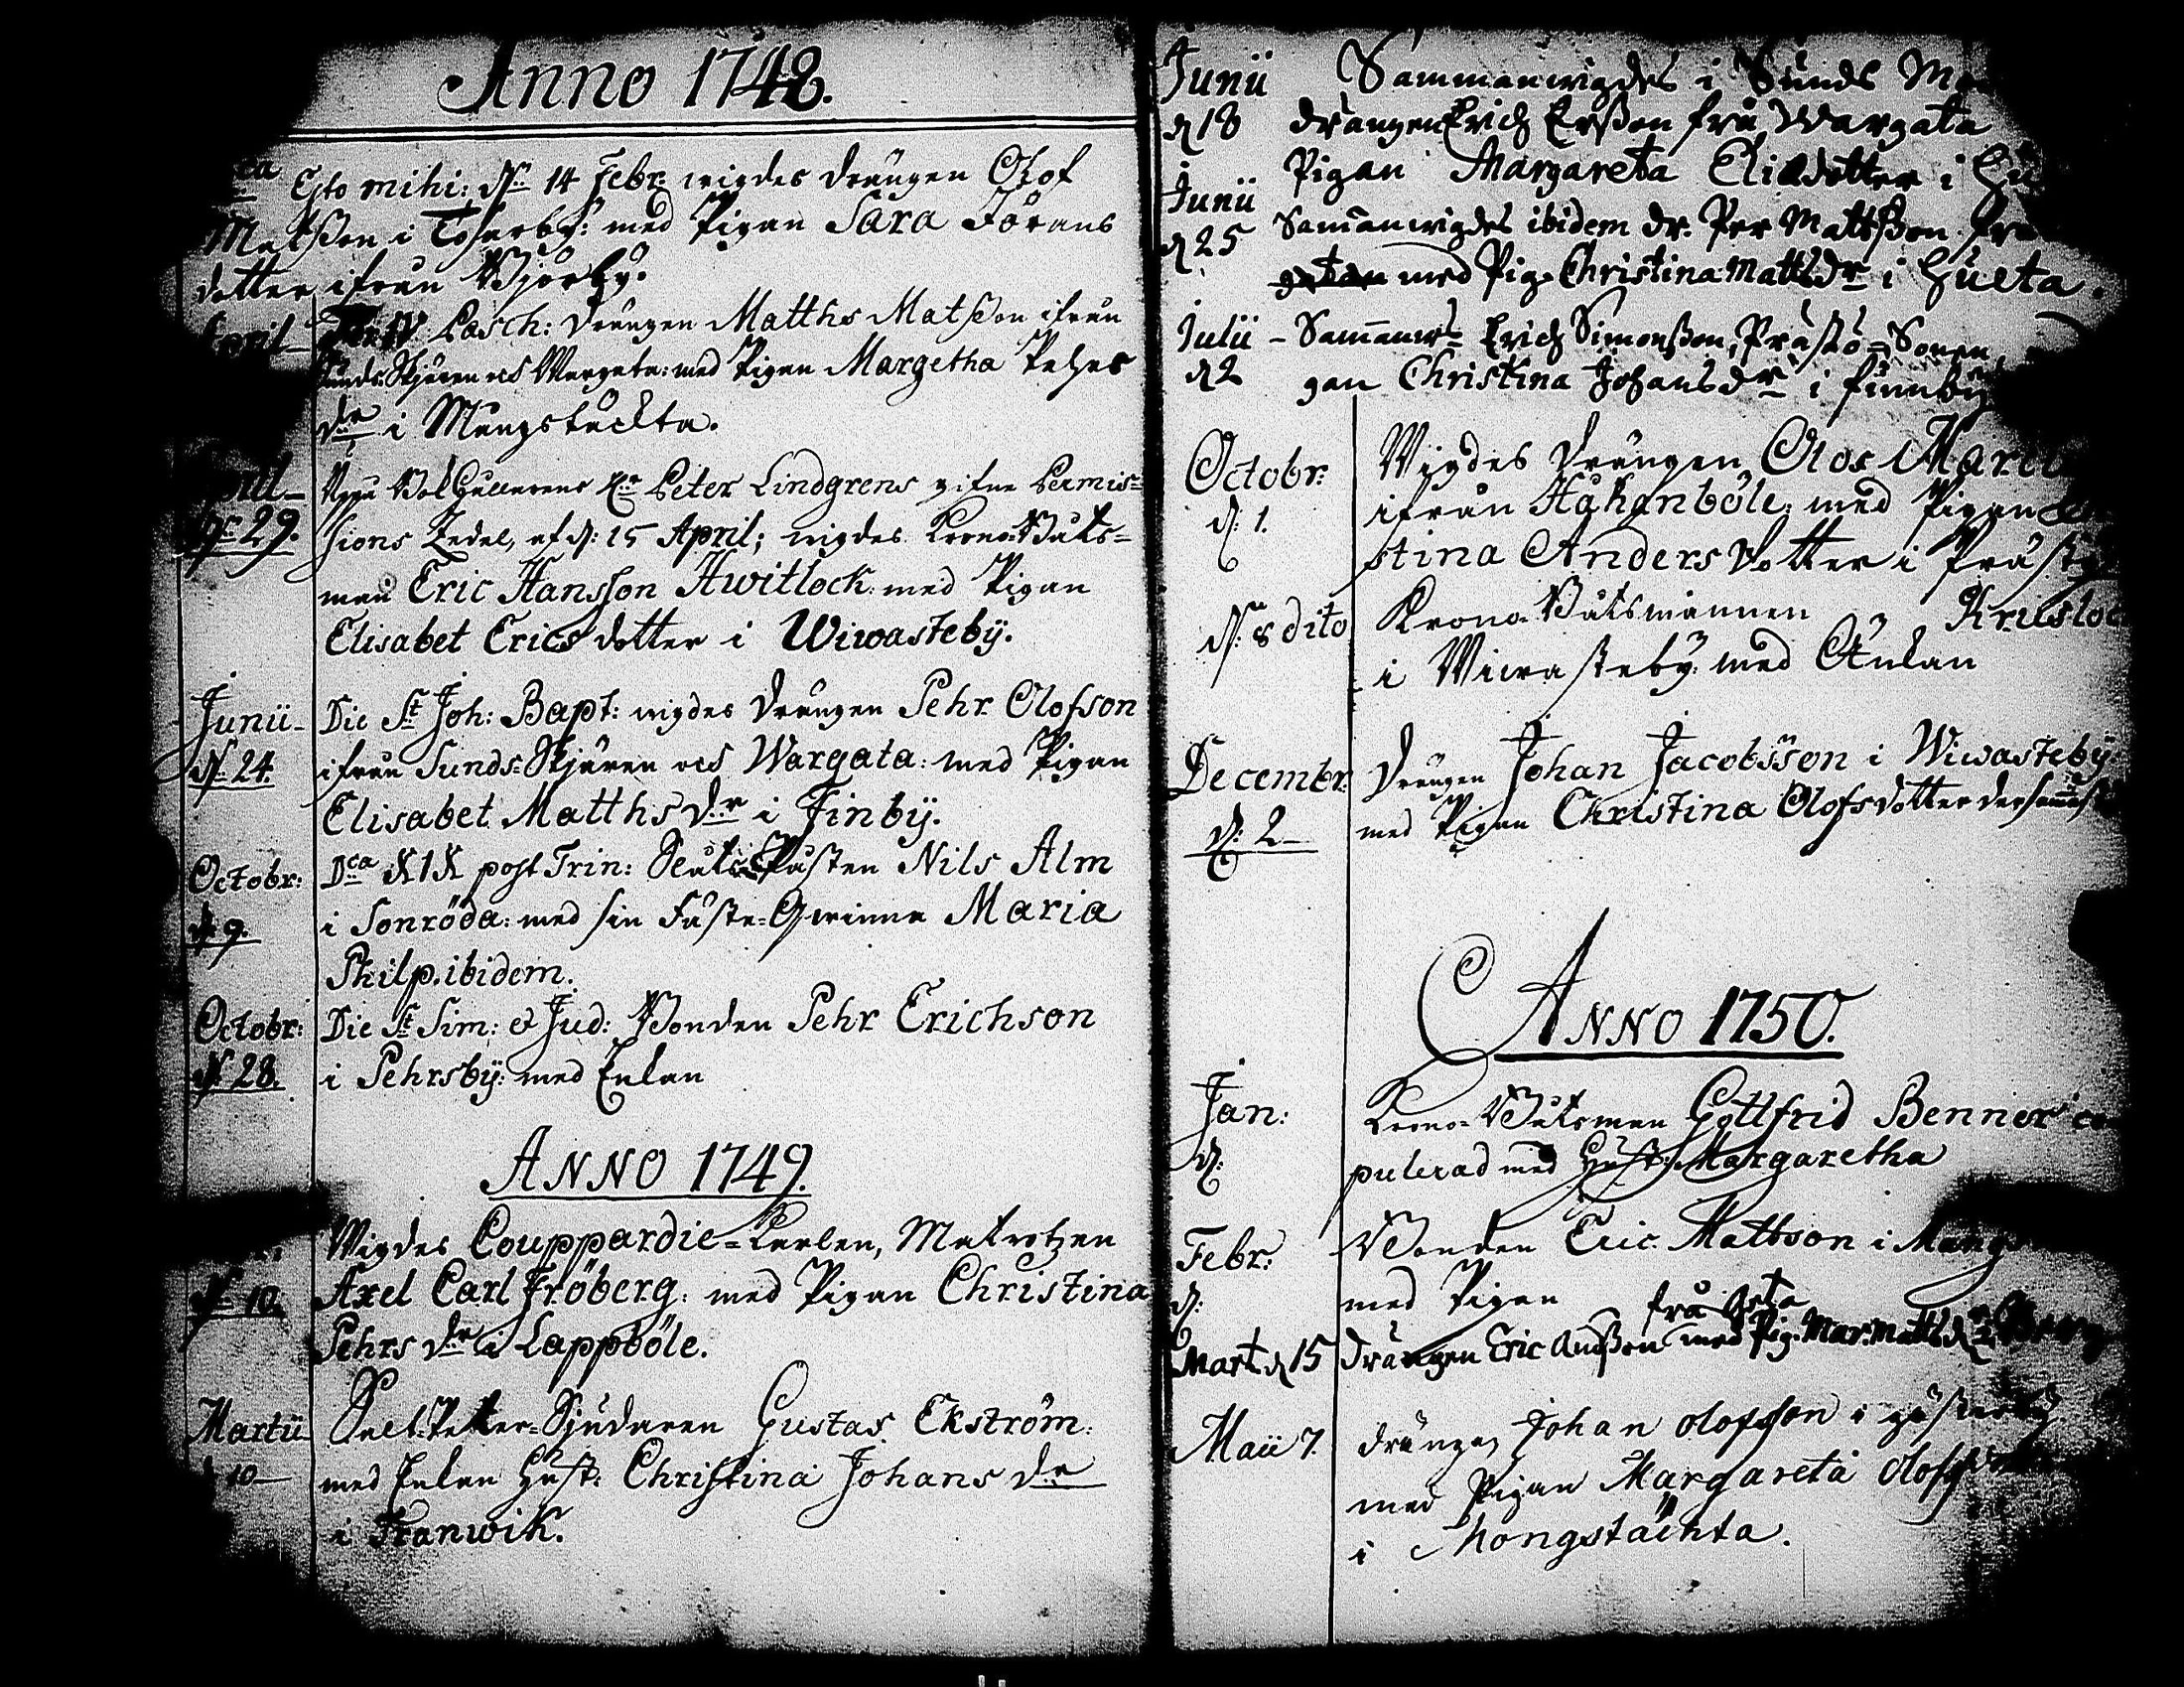 Anno 1748.
Esto mihi: d. 14 Febr: wigdes drängen Olof
Matsson i Tosarby: med Pigan Sara Jörans
dotter ifrån Bjärby.
April Pasch: drängen Matths Matsson ifrån
Sunds Skjären och Wargata: med Pigan Margetha Pehrs
dr i Mångstäckta.
April Uppå Befhr Peter Lindgrens gifne Permis=
29. sions Zedel, af d: 15 April; wigdes Krono-Båts=
man Eric Hansson Hwitlock: med Pigan
Elisabet Erics dotter i Wiwasteby.
Junii Die St Joh: Bapt: wigdes drängen Pehr Olofson
d. 24. ifrån Sunds-Skjären och Wargata: med Pigan
Elisabet Matths dr i Finby.
Octobr: Dca XIX post Trin: Nils Alm
d. 9. i Sonröda: med sin Fäste-Qwinna Maria
Philp. ibidem.
Octobr: Die St Sim: et Jud: Bonden Pehr Erichson
d. 28. i Pehrsby: med Enkan
ANNO 1749.
Wigdes Couppardie-Karlen, Matrotzen
d. 10. Axel Carl Fröberg: med Pigan Christina
Pehrs dr i Lappböle.
Martii Salt-Petter-Sjudaren Gustaf Ekström:
10 med Enkan Hust: Christina Johans dr
i Tranwik.
Junii Sammanwigdes i Sunds
d 18 drängen Erich Ersson frå Wargata
Pigan Margareta Elisdotter i
Junii Samanwigdes ibidem dr. Per Mattsson
d 25 med Pig. Christina Mattsdr i Hulta.
Julii – Samanw: Erich Simonsson, Prästö=Sonen,
d 2 gan Christina Johansdr i finnby
Octobr: Wigdes drängen Olof
d: 1. ifrån Håkanböle: med Pigan
stina Anders dotter i Präst
d: 8 dito Krono Båtsmannen
i Wiwasteby: med Enkan
Decembr: drängen Johan Jacobsson i Wiwasteby:
d: 2 med Pigan Christina Olofsdotter dersammast
ANNO 1750.
Jan: Krono-Båtsman Gottfrid Benner co
d: pulerad med Hust: Margaretha
Febr: Bonden Eric Mattson i Mång
d: med Pigan
frå Geta
Mart d 15 drängen Eric Andsson med Pig. Mar: Mattsdr
Maii 7. drängen Johan olofsson i
med Pigan Margareta olofs
i Mongstäckta.